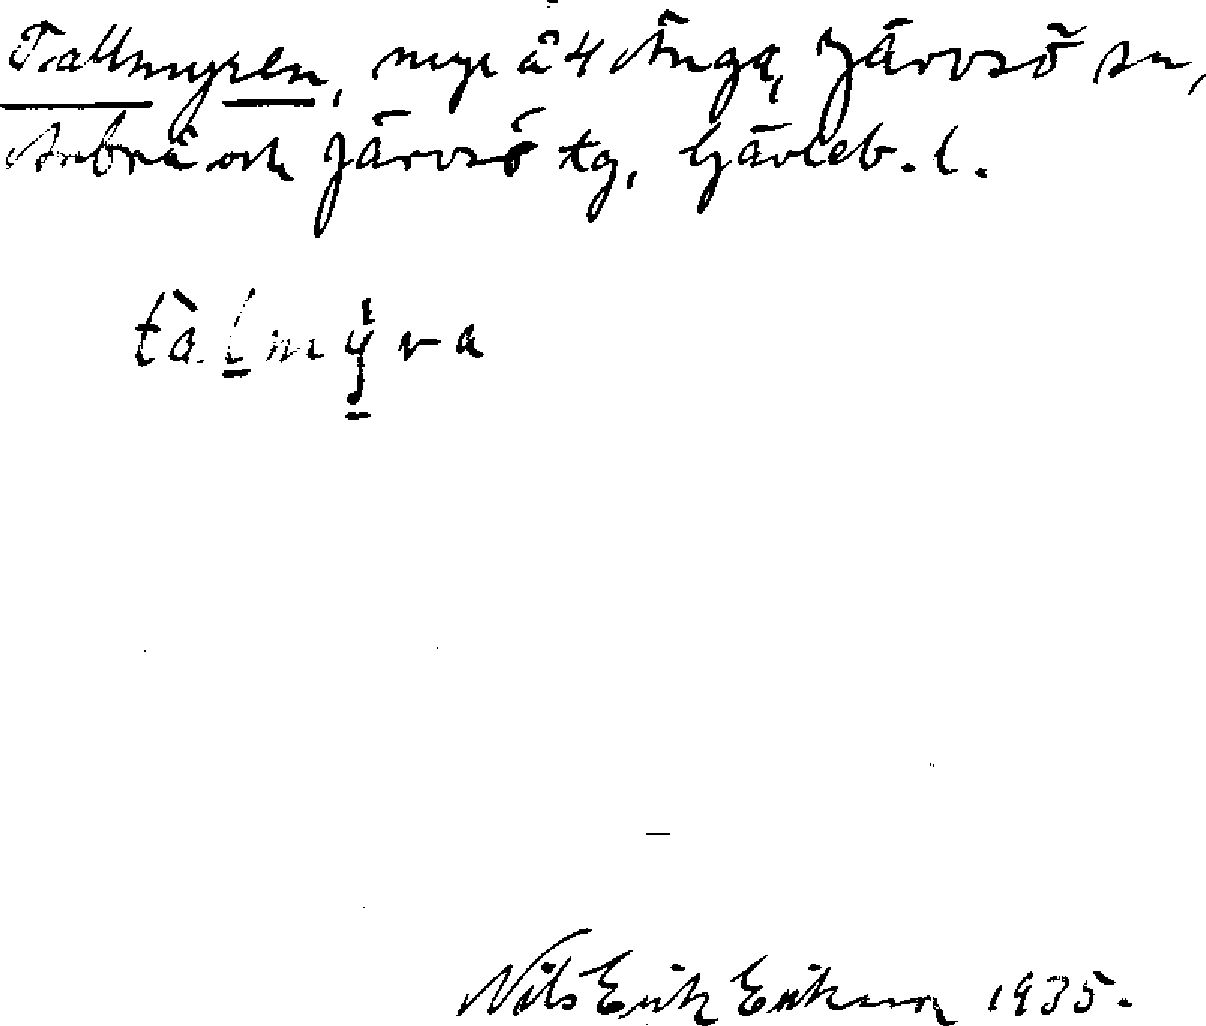 Tallmyren, myr å 4 Änga, Järvsö sn,
Arbrå och Järvsö tg, Gävleb. l.
tàlmýra
Nils Erik Erikson 1935.